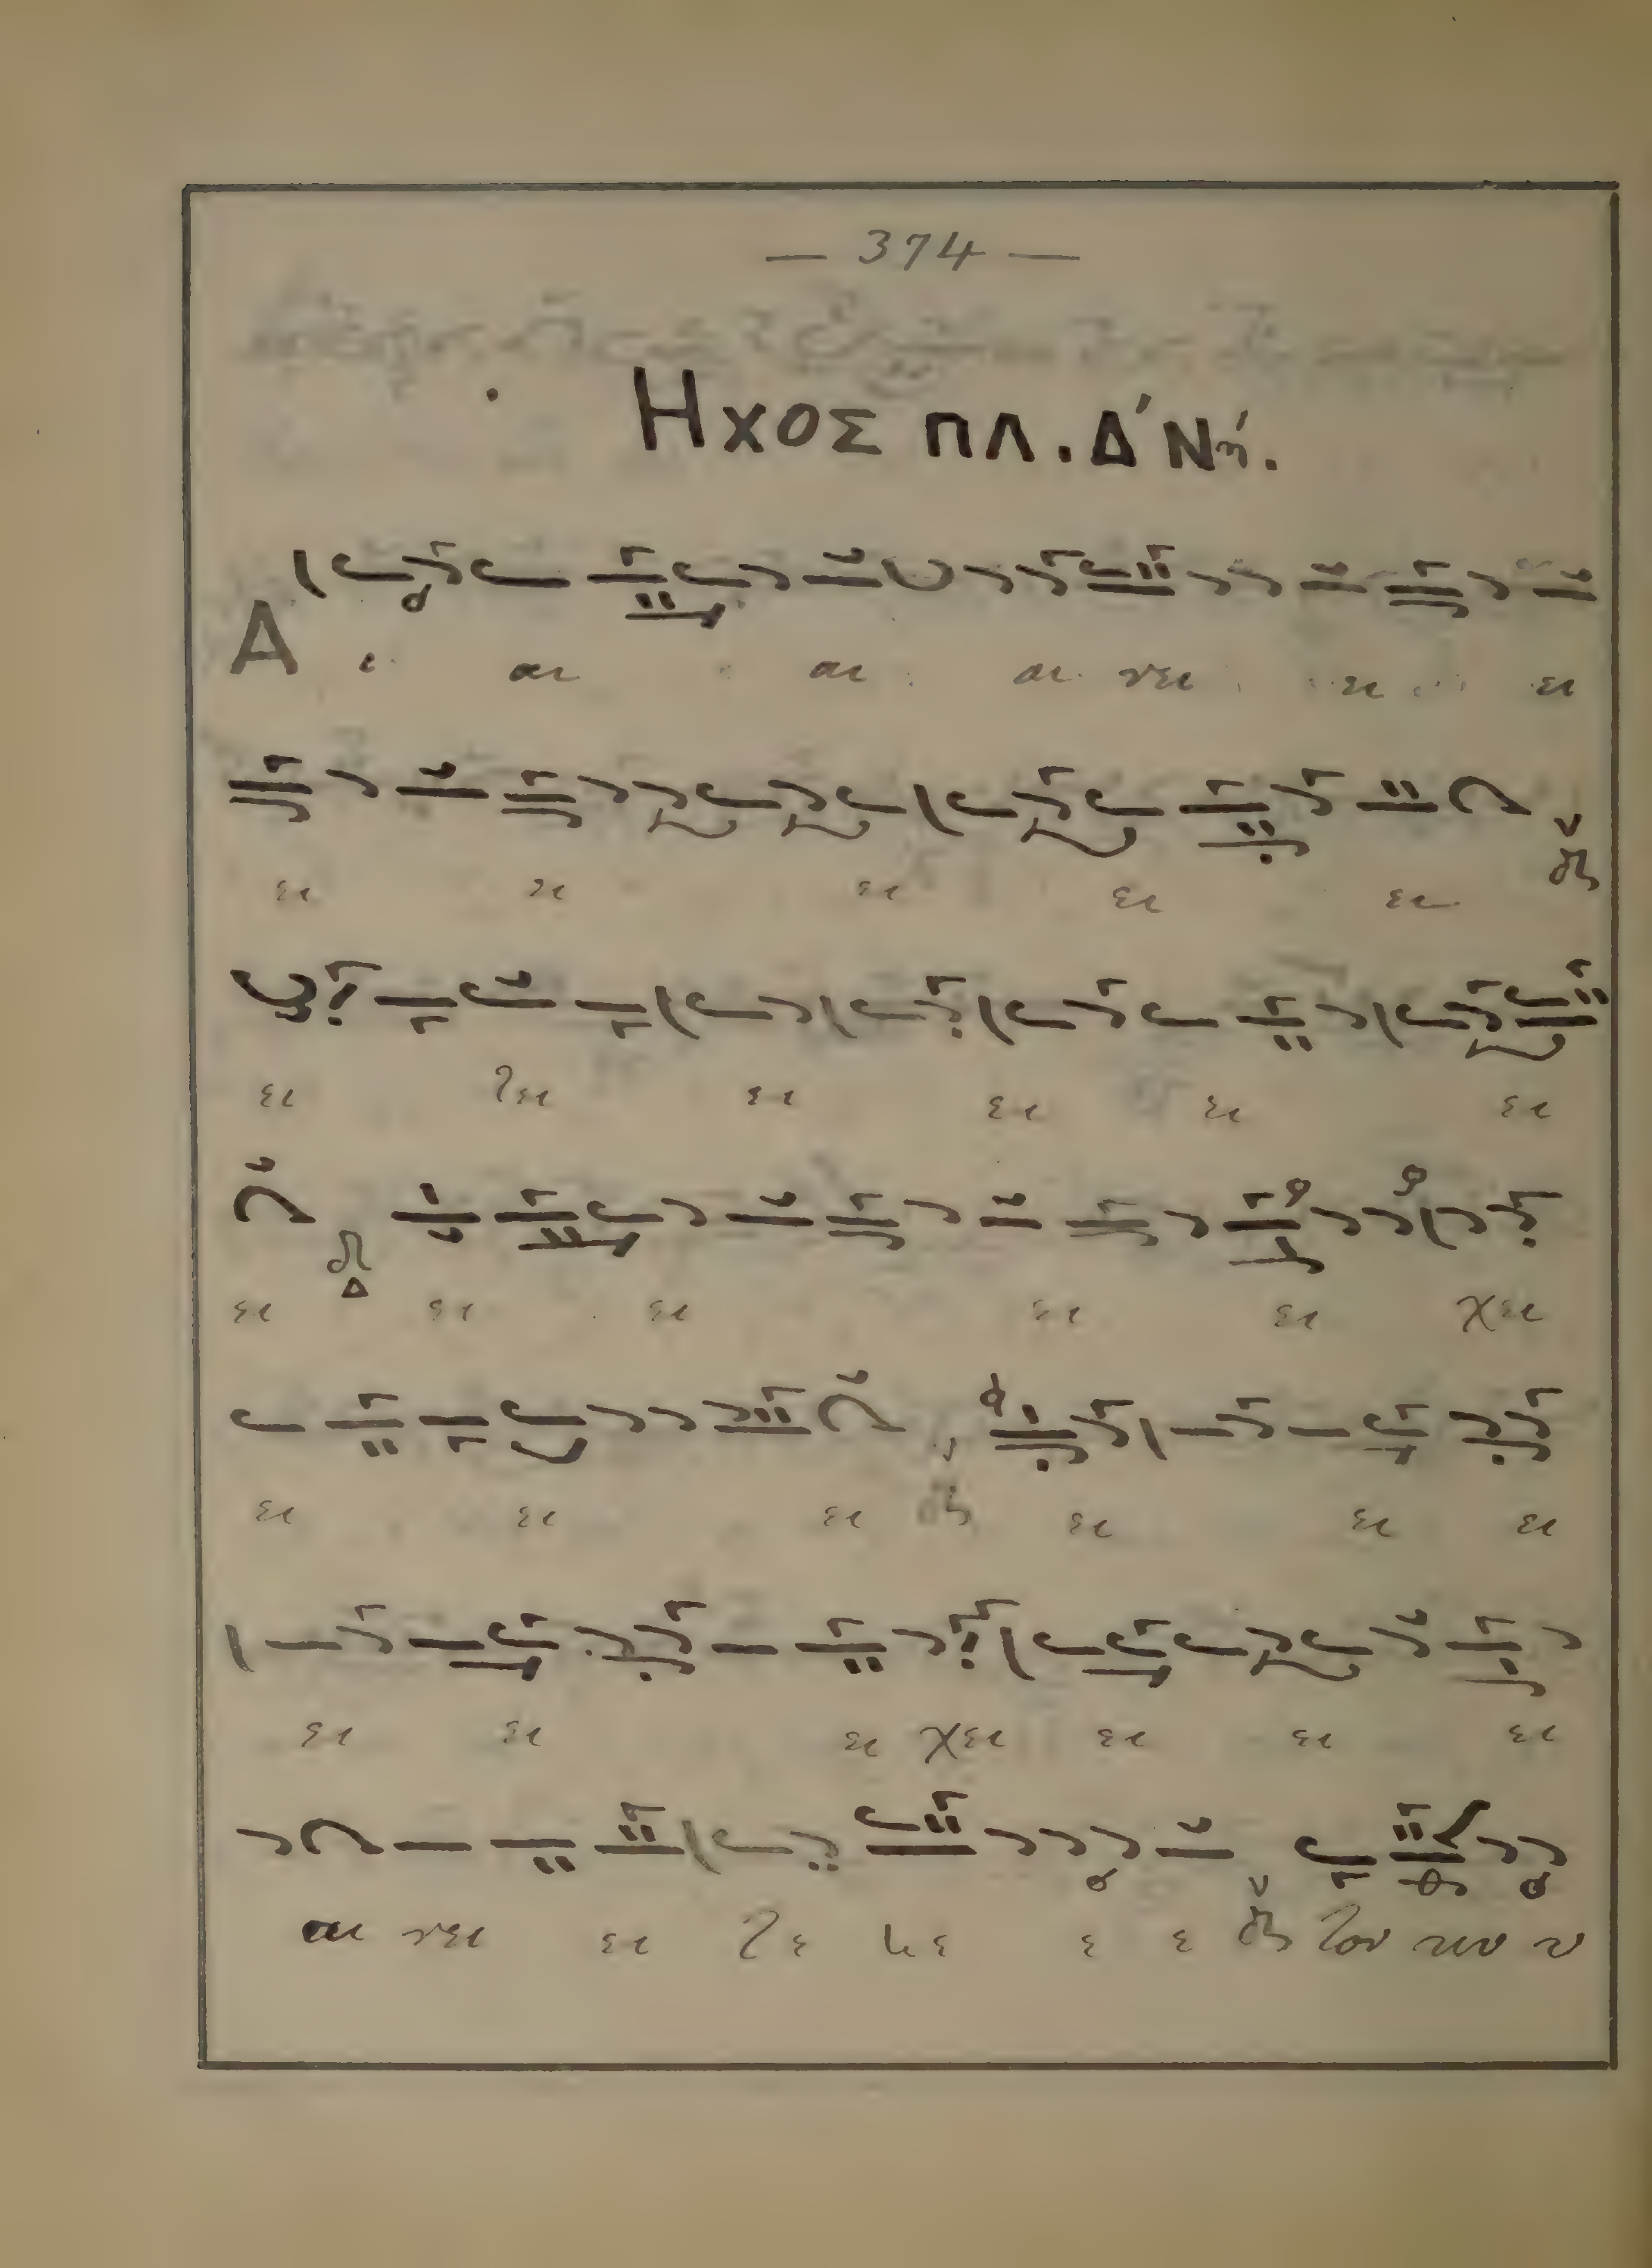 — 374 —
Ηχος πλ. Δ' Νή.
Α ι αι αι αι νει ει ει
ει ει ει ει ει
ει τει ει ει ει ει
ει ει ει ει ει χει
ει ει ει ει ει ει
ει ει ει χει ει ει ει
αι νει ει τε ε ε τον κυυ υ